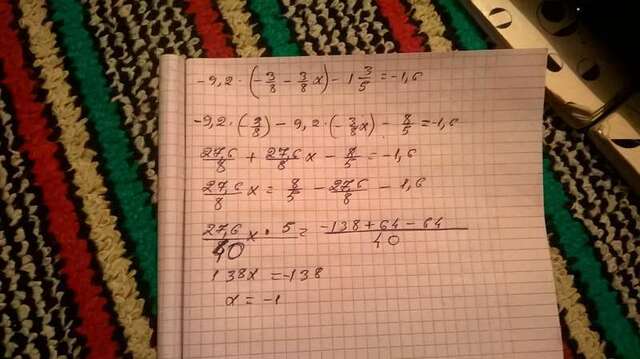 -9,2 · (-3/8 - 3/8 x) - 1 3/5 = -1,6
-9,2 · (-3/8) - 9,2 · (-3/8 x) - 8/5 = -1,6
27,6/8 + 27,6/8 x - 8/5 = -1,6
27,6/8 x = 8/5 - 27,6/8 - 1,6
27,6/40 x · 5 = -138+64-64/40
138x = -138
x = -1